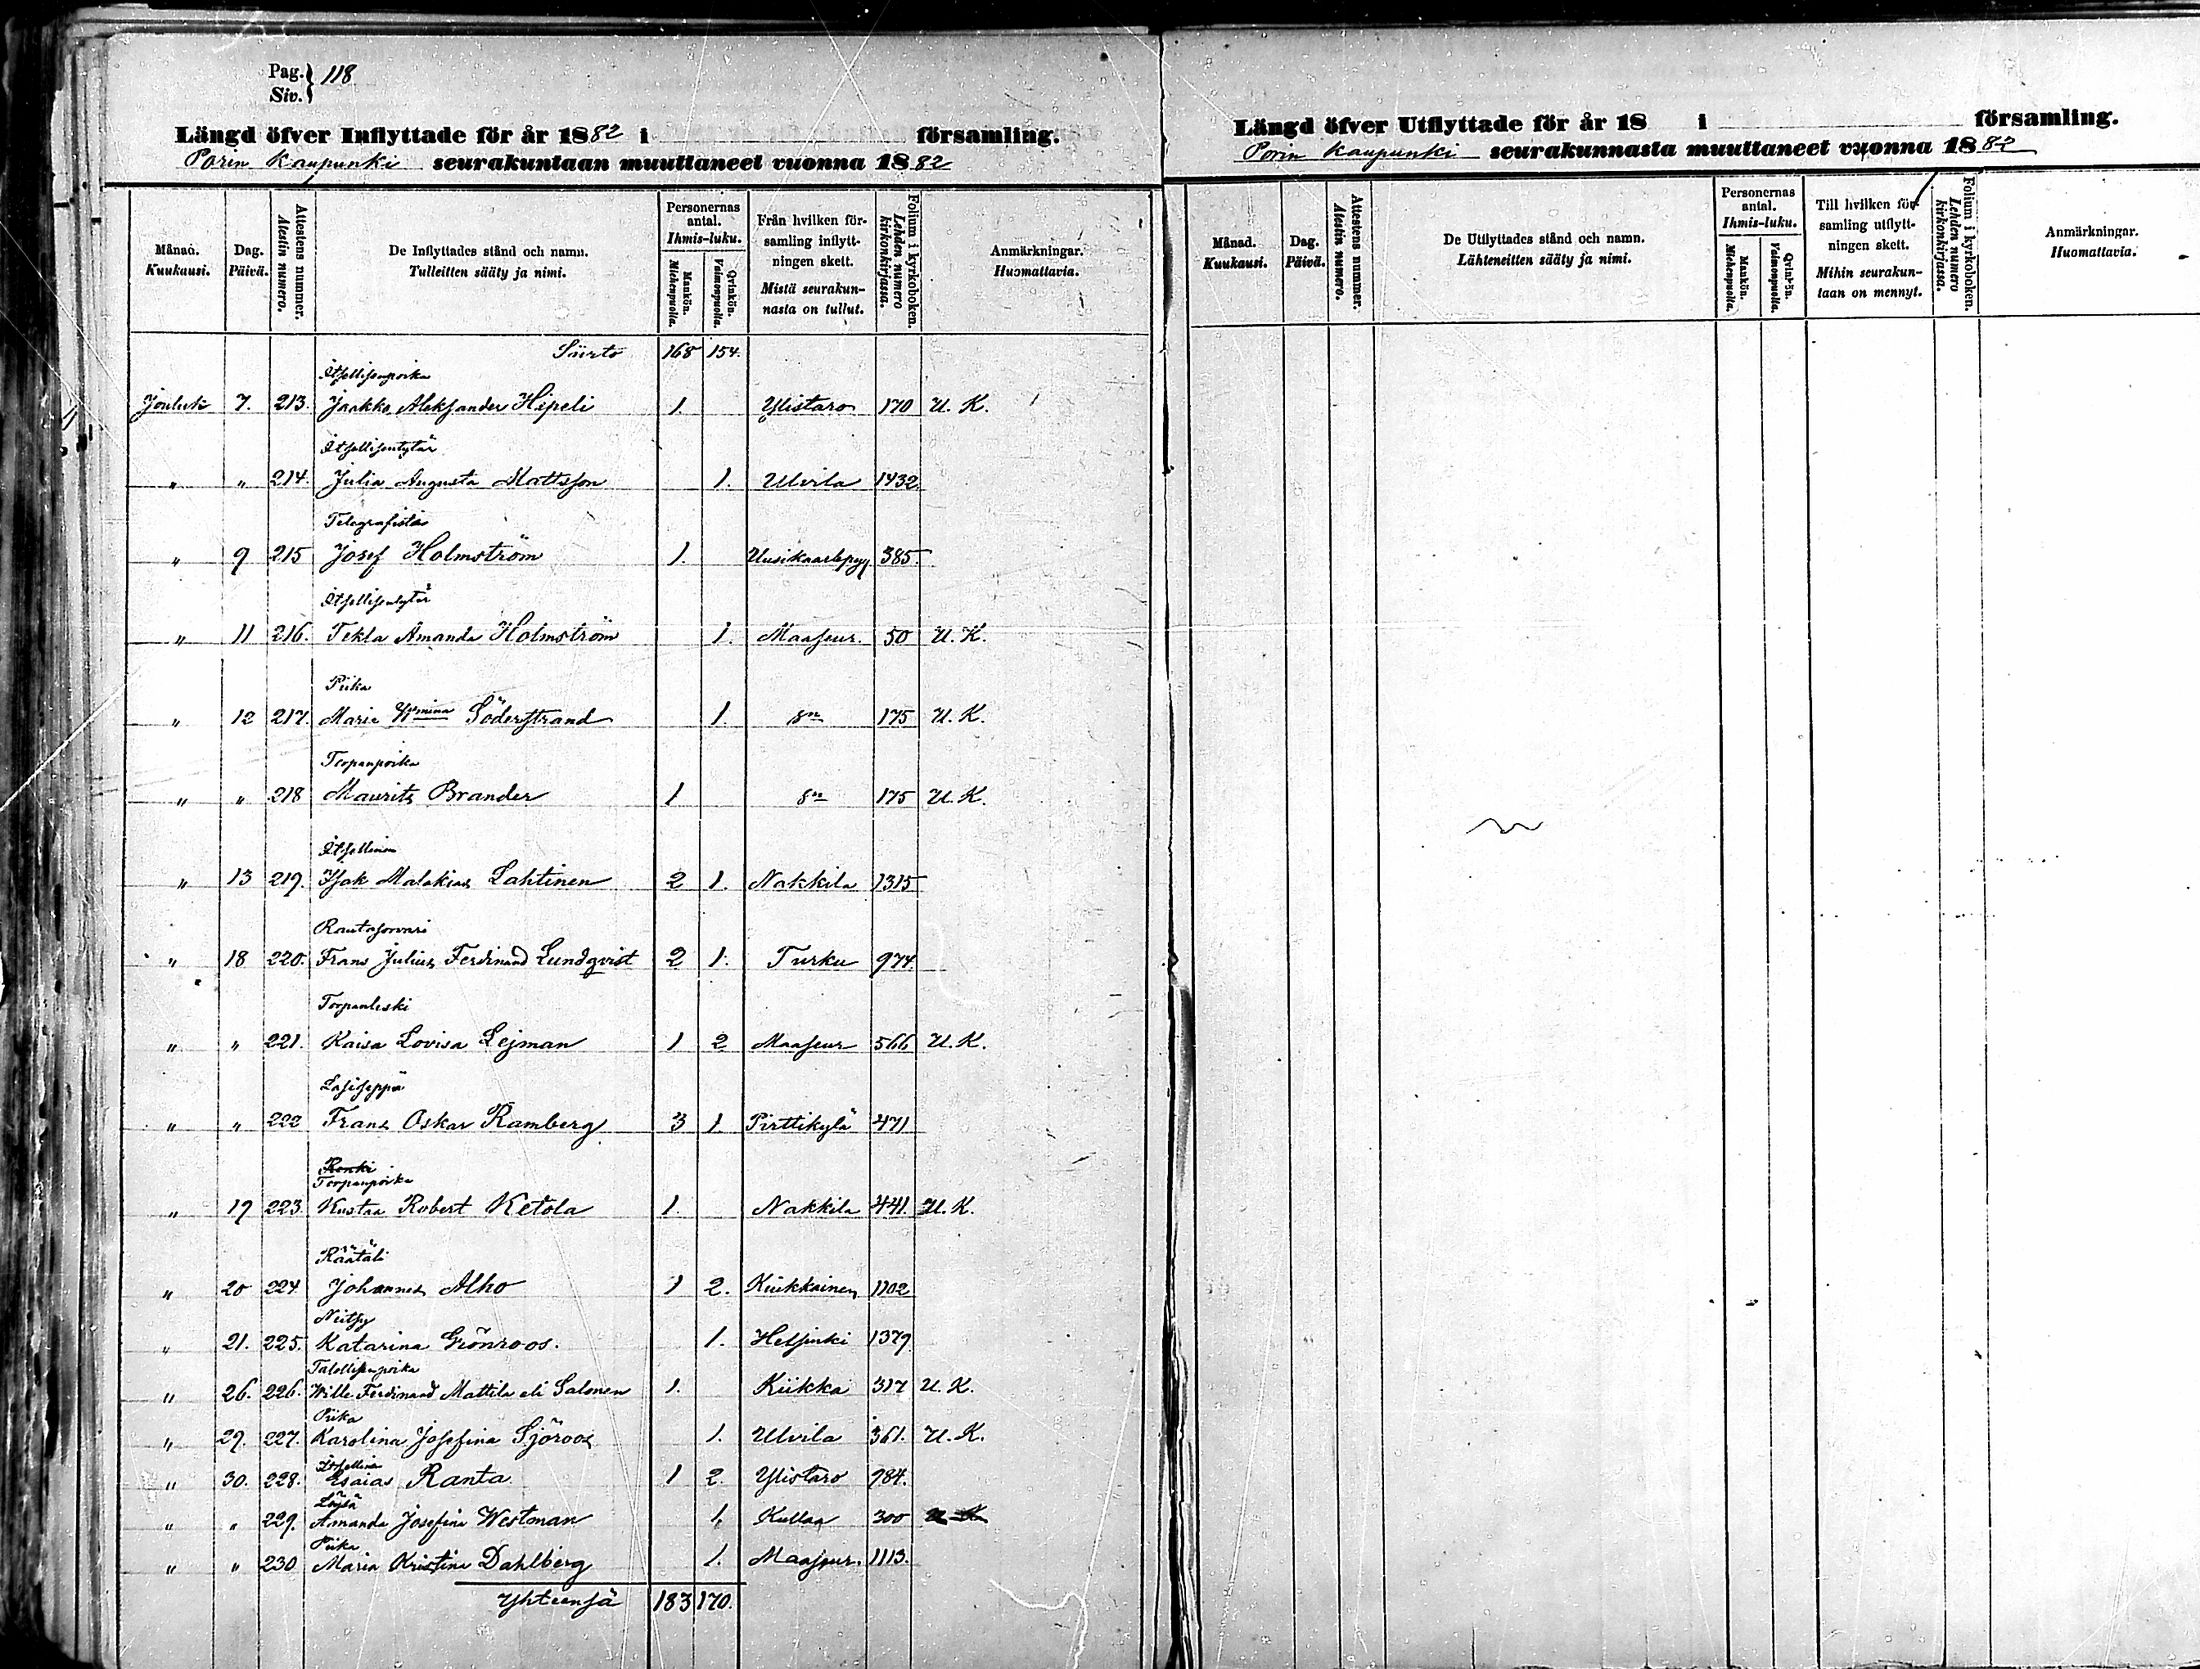 Pag. } 118
Siv. }
Längd öfver Inflyttade för år 1882 i församling.
Porin Kaupunki seurakuntaan muuttaneet vuonna 1882
Månad. Kuukausi. | Dag. Päivä. | Attestens nummer. Atestin numero. | De Inflyttades stånd och namn. Tulleitten sääty ja nimi. | Personernas antal. Ihmis-luku. Mankön. Miehenpuolia. Qvinkön. Vaimonpuolia. | Från hvilken församling inflyttningen skett. Mistä seurakunnasta on tullut. | Folium i kyrkoboken. Lehden numero kirkonkirjassa. | Anmärkningar. Huomattavia.
Siirto 168 154.
Itsellisenpoika
Jouluk 7. 213. Jaakko Aleksander Hipeli 1. Ylistaro 170 U. K.
Itsellisentytär
" " 214. Julia Augusta Mattsson 1. Ulvila 1432.
Telegrafista
" 9 215 Josef Holmström 1. Uusikaarlepyy 385.
Itsellisentytär
" 11 216. Tekla Amanda Holmström 1. Maaseur. 50 U. K.
Piika
" 12 217. Maria Wmina Söderstrand 1. sn 175 U. K.
Torpanpoika
" " 218 Maurits Brander 1 sn 175 U. K.
Itsellinen
" 13 219. Isak Malakias Lahtinen 2 1. Nakkila 1315
Rautasorvari
" 18 220. Frans Julius Ferdinand Lundqvist 2 1. Turku 974.
Torpanleski
" " 221. Kaisa Lovisa Lejman 1 2 Maaseur 566 U. K.
Lasiseppä
" " 222 Frans Oskar Ramberg 3 1. Pirttikylä 471
Renki
Torpanpoika
" 19 223. Kustaa Robert Ketola 1. Nakkila 441. U. K.
Räätäli
" 20 224 Johannes Alho 1 2. Kiukkainen 1102
Neitsy
" 21. 225. Katarina Grönroos. 1. Helsinki 1379
Talollisenpoika
" 26. 226. Wille Ferdinand Mattila eli Salonen 1. Kiikka 317 U. K.
Piika
" 29. 227. Karolina Josefina Sjöroos 1. Ulvila 361. U. K.
Itsellinen
" 30. 228. Esaias Ranta 1 2. Ylistaro 984.
Löysä
" " 229. Amanda Josefina Westman 1. Kullaa 300 U K
Piika
" " 230 Maria Kristina Dahlberg 1. Maaseur. 1113.
Yhteensä 183 170.
Längd öfver Utflyttade för år 18 i församling.
Porin Kaupunki seurakunnasta muuttaneet vuonna 1882
Månad. Kuukausi. | Dag. Päivä. | Attestens nummer. Atestin numero. | De Utflyttades stånd och namn. Lähteneitten sääty ja nimi. | Personernas antal. Ihmis-luku. Mankön. Miehenpuolia. Qvinkön. Vaimonpuolia. | Till hvilken församling utflyttningen skett. Mihin seurakuntaan on mennyt. | Folium i kyrkoboken. Lehden numero kirkonkirjassa. | Anmärkningar. Huomattavia.